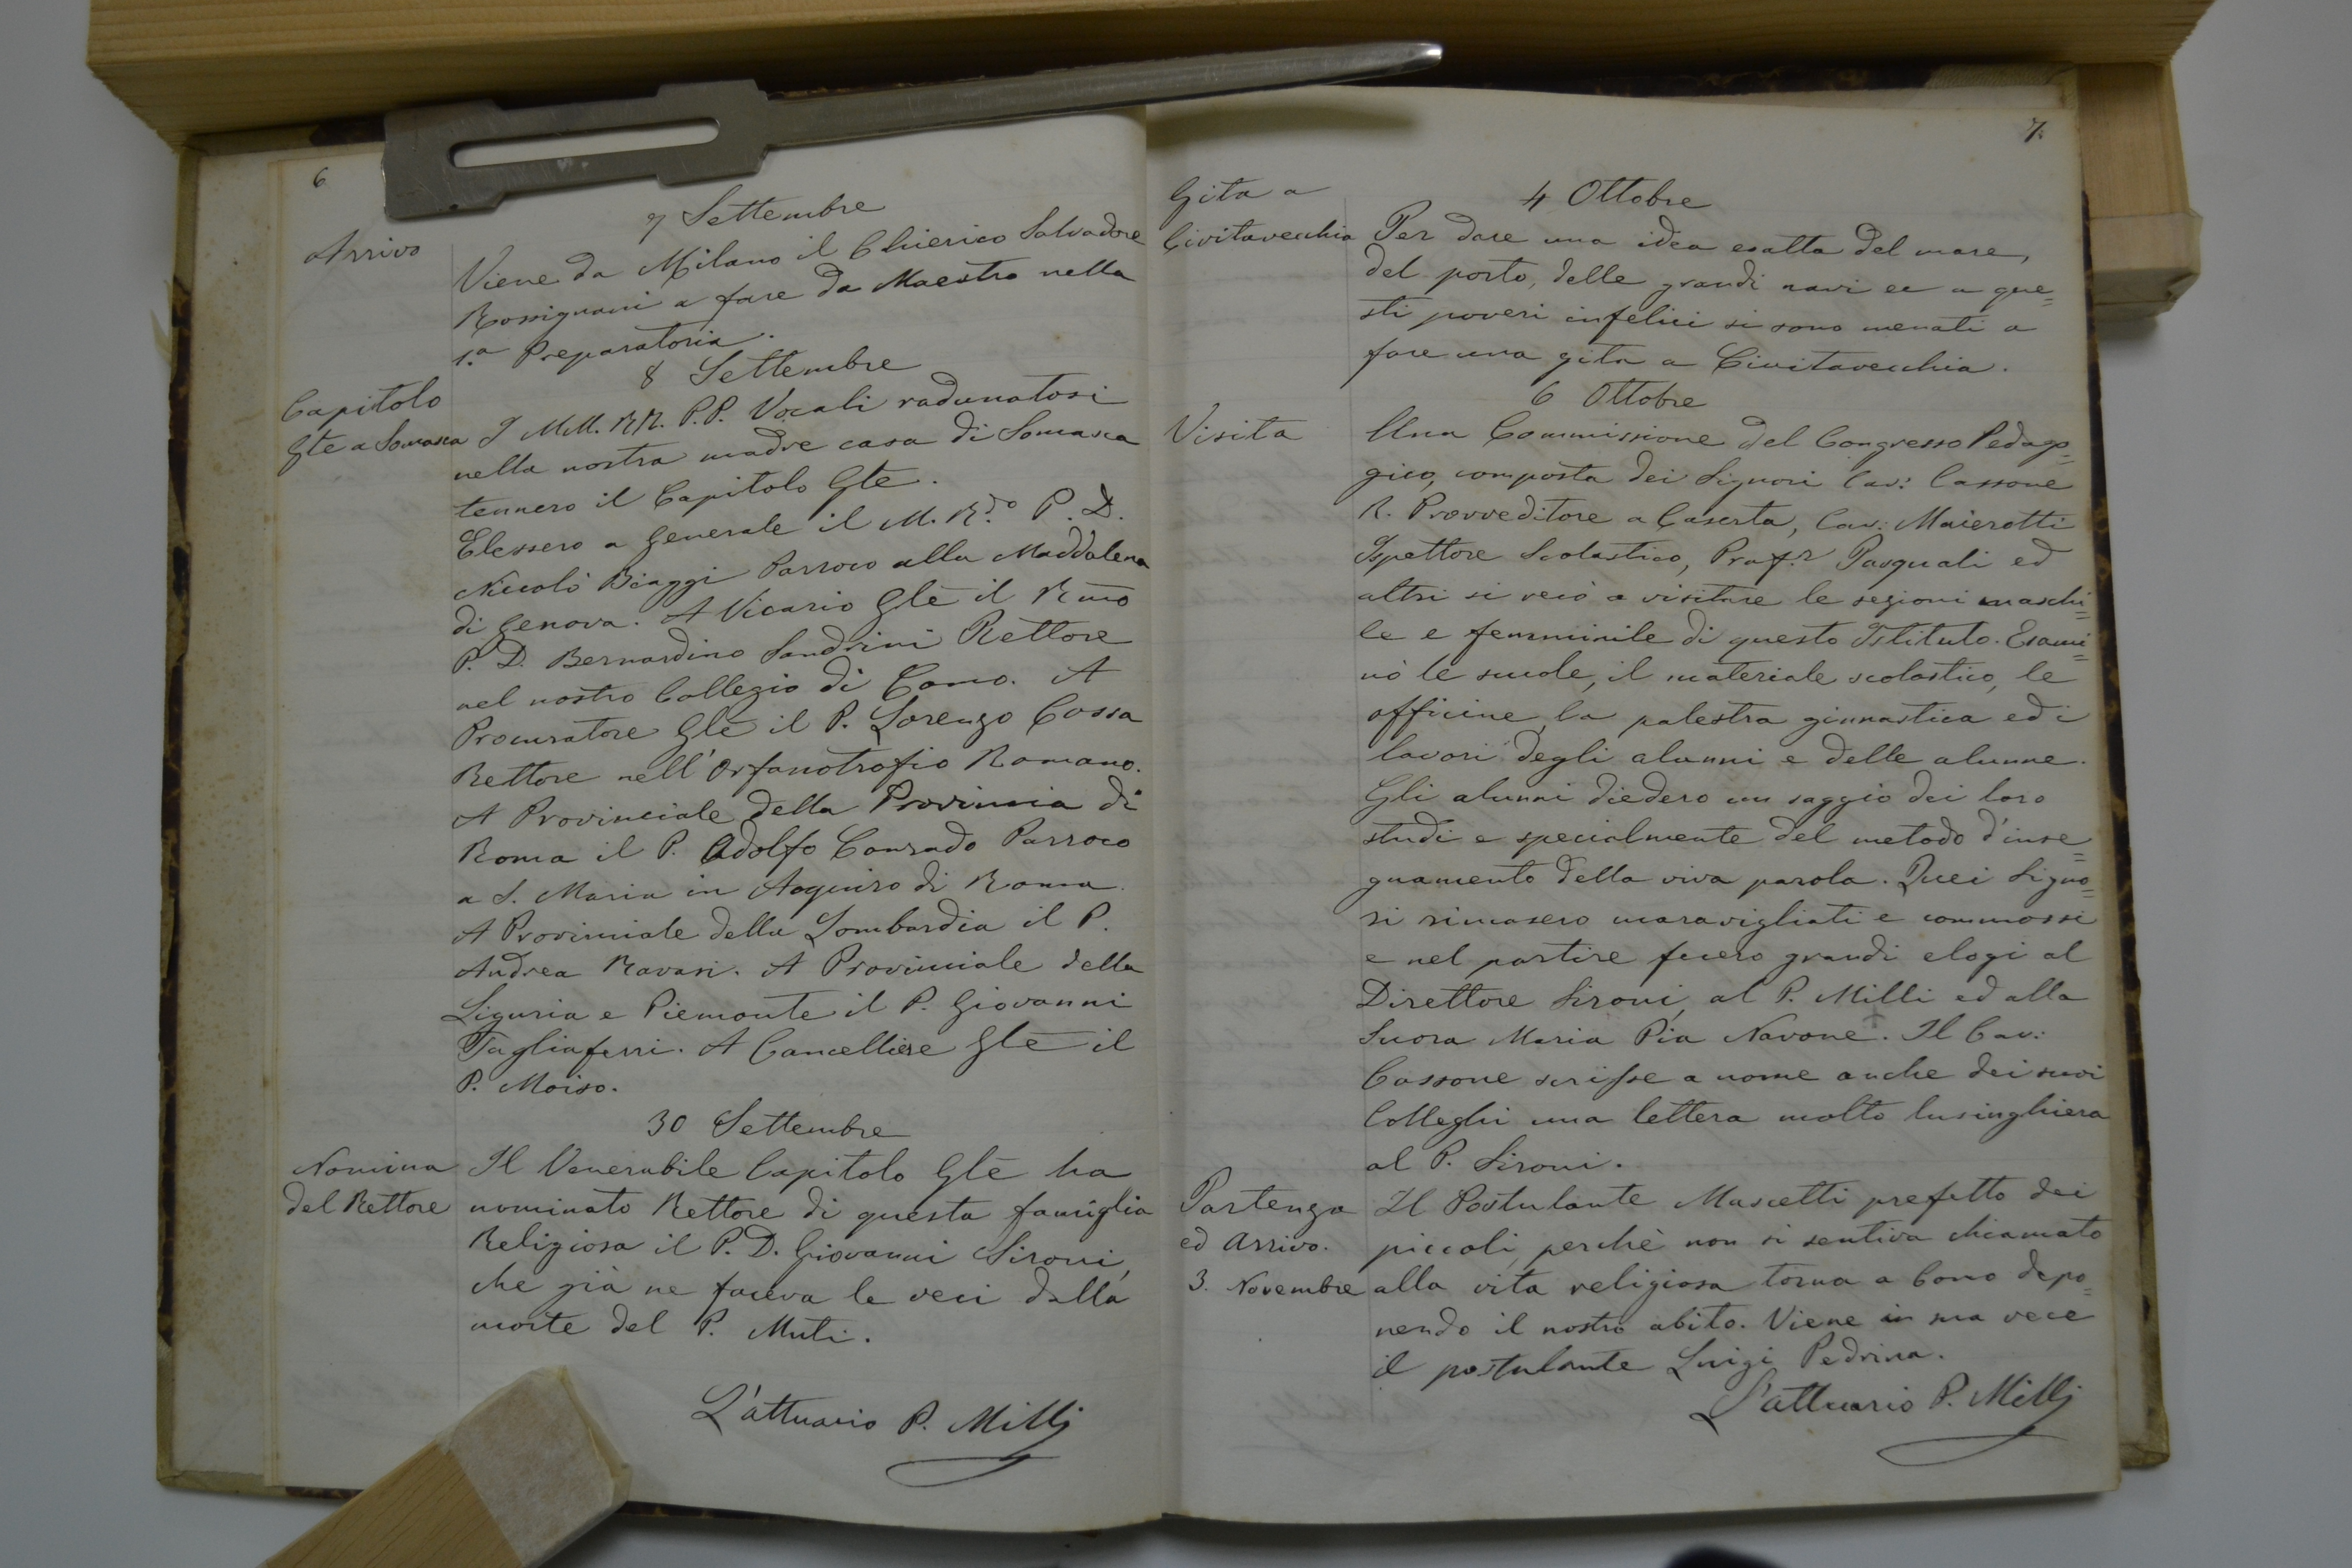 6
7 Settembre
Arrivo
Viene da Milano il Chierico Salvadore
Rossignani a fare da Maestro nella
1.a Preparatoria.
8 Settembre
Capitolo
Gle a Somasca
I MM. RR. P.P. Vocali radunatosi
nella nostra madre casa di Somasca
tennero il Capitolo Gle.
Elessero a Generale il M. R.do P. D.
Niccolò Biaggi Parroco alla Maddalena
di Genova. A Vicario Gle il Rmo
P. D. Bernardino Sandrini Rettore
nel nostro Collegio di Como. A
Procuratore Gle il P. Lorenzo Cossa
Rettore nell'Orfanotrofio Romano.
A Provinciale della Provincia di
Roma il P. Adolfo Conrado Parroco
a S. Maria in Aquiro di Roma.
A Provinciale della Lombardia il P.
Andrea Ravasi. A Provinciale della
Liguria e Piemonte il P. Giovanni
Tagliaferri. A Cancelliere Gle il
P. Moiso.
30 Settembre
Nomina
del Rettore
Il Venerabile Capitolo Gle ha
nominato Rettore di questa famiglia
Religiosa il P. D. Giovanni Sironi,
che già ne faceva le veci dalla
morte del P. Muti.
L'attuario P. Milli
7.
Gita a
Civitavecchia
4 Ottobre
Per dare una idea esatta del mare,
del porto, delle grandi navi ec a que=
sti poveri infelici si sono menati a
fare una gita a Civitavecchia.
6 Ottobre
Visita
Una Commissione del Congresso Pedago=
gico, composta dei Signori Cav: Cassone
R. Provveditore a Caserta, Cav: Maierotti
Ispettore Scolastico, Prof.r Pasquali ed
altri si recò a visitare le sezioni maschi=
le e femminile di questo Istituto. Esami=
nò le scuole, il materiale scolastico, le
officine, la palestra ginnastica ed i
lavori degli alunni e delle alunne.
Gli alunni diedero un saggio dei loro
studi e specialmente del metodo d'inse=
gnamento della viva parola. Quei Signo=
ri rimasero maravigliati e commossi
e nel partire fecero grandi elogi al
Direttore Sironi, al P. Milli ed alla
Suora Maria Pia Navone. Il Cav:
Cassone scrisse a nome anche dei suoi
Colleghi una lettera molto lusinghiera
al P. Sironi.
Partenza
ed Arrivo.
3. Novembre
Il Postulante Mascetti prefetto dei
piccoli, perchè non si sentiva chiamato
alla vita religiosa torna a Como depo=
nendo il nostro abito. Viene in sua vece
il postulante Luigi Pedrina.
L'attuario P. Milli